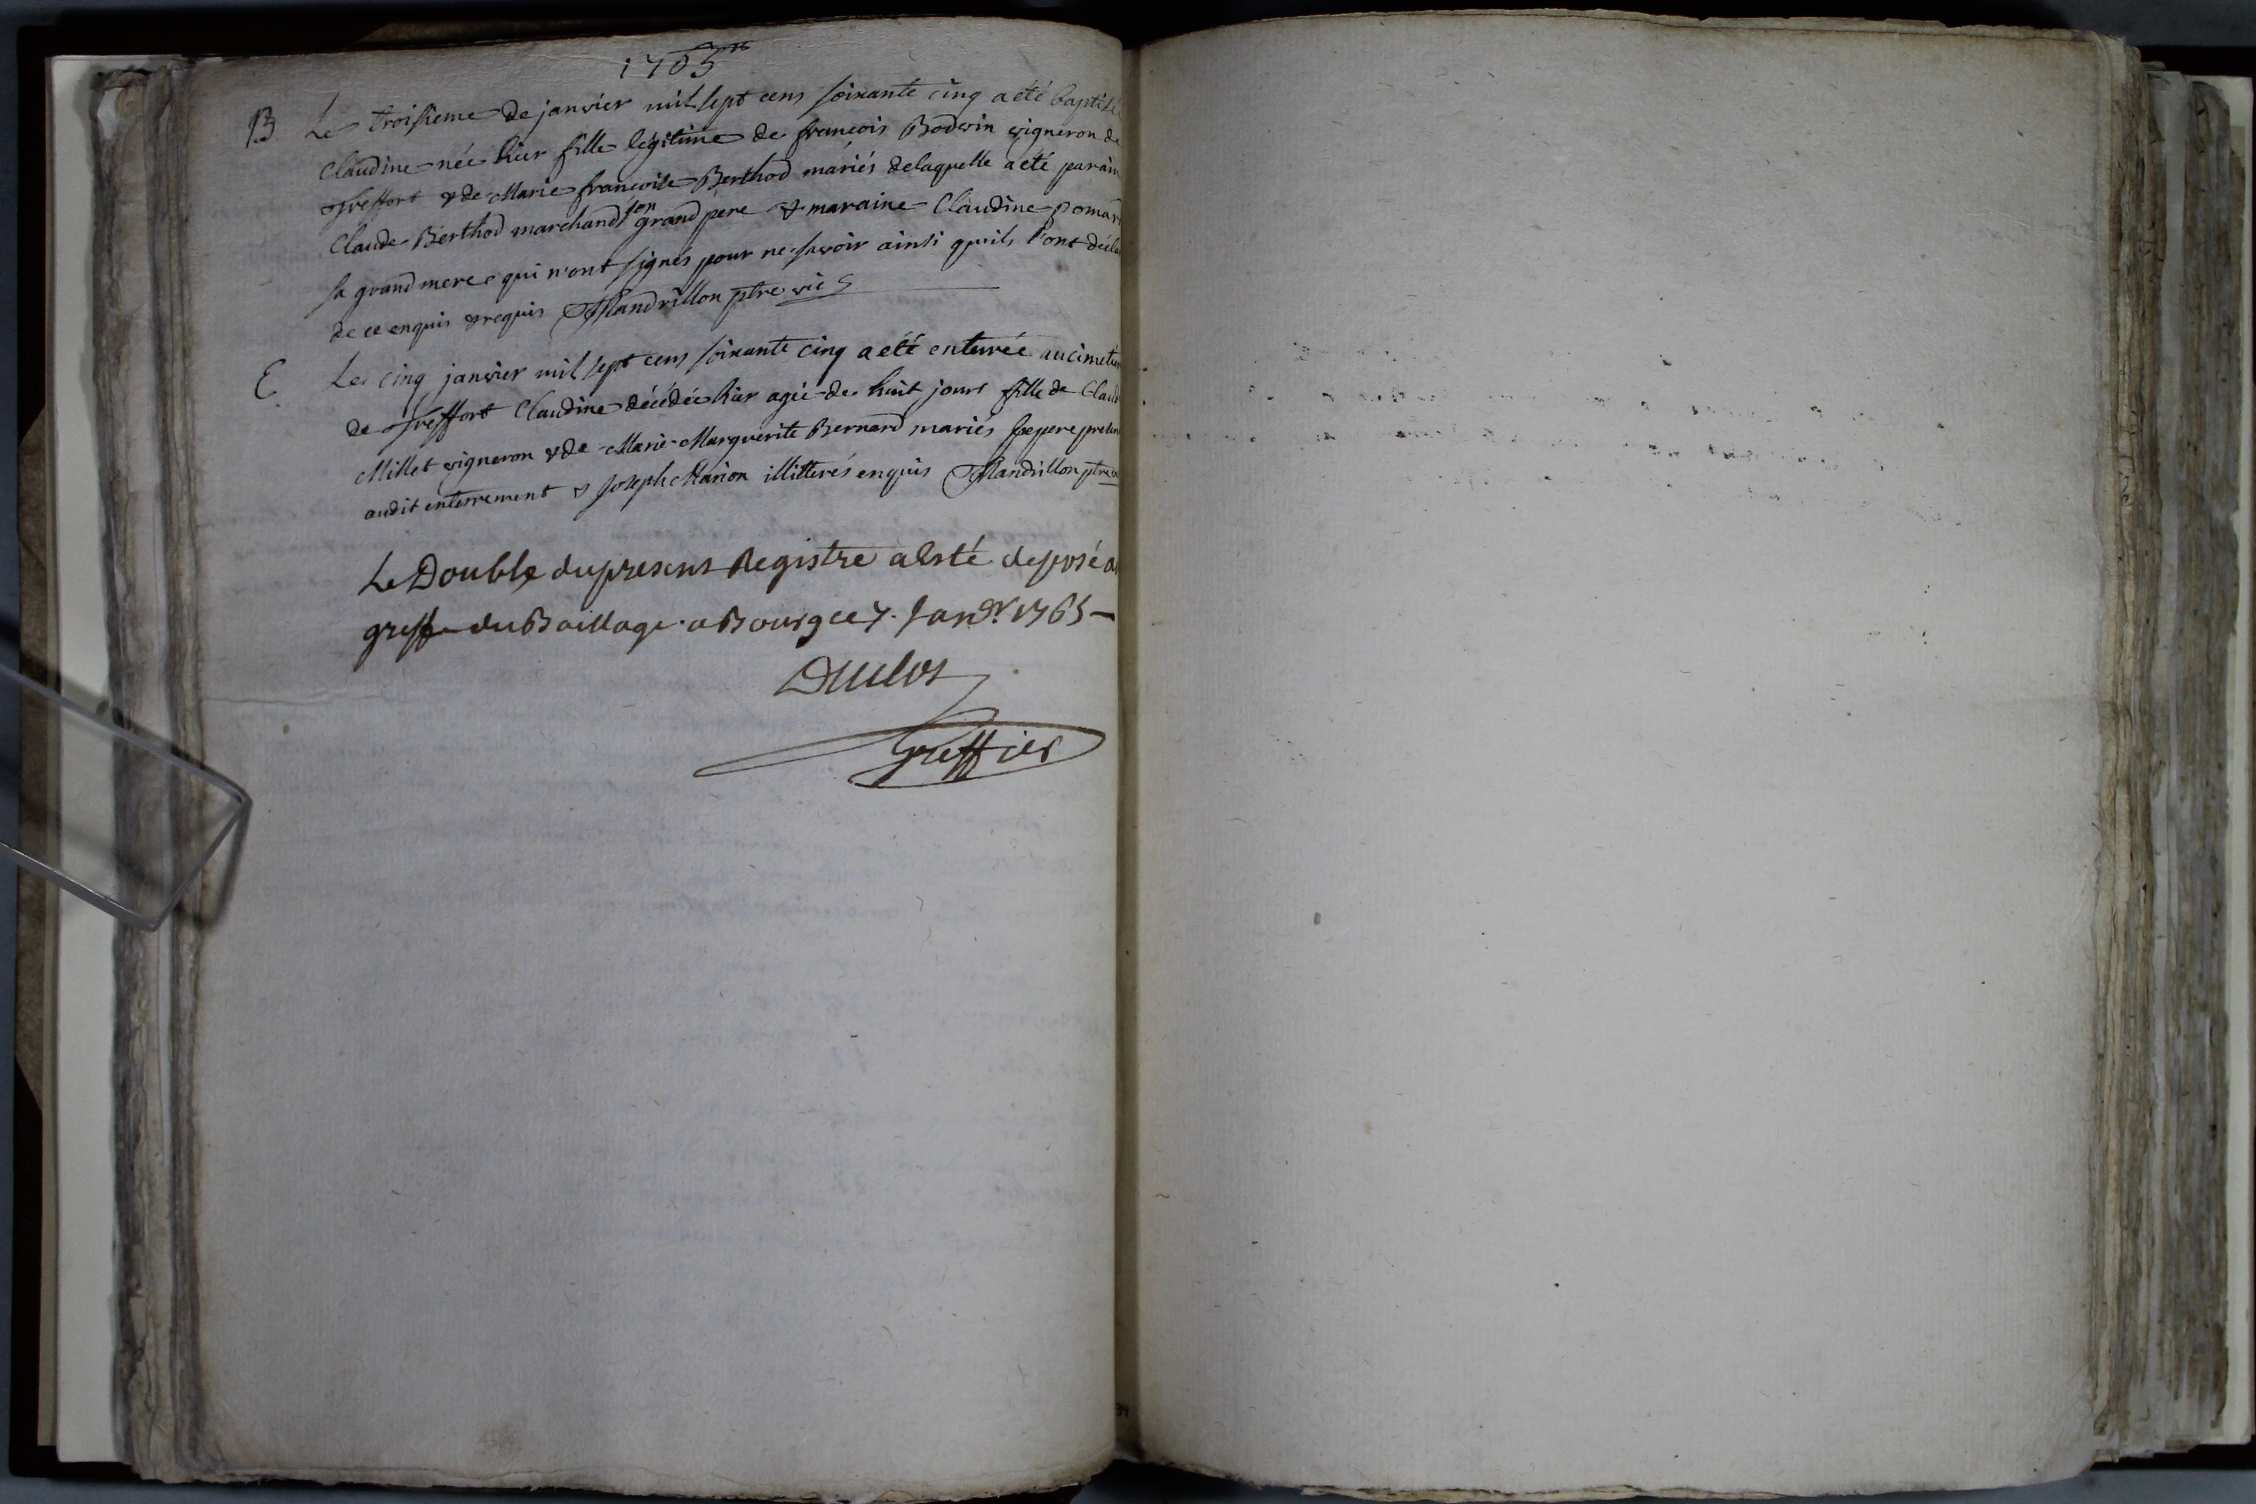 1765
B Le troisieme de janvier mil sept cens soixante cinq a eté baptisée
Claudine née hier fille légitime de francois Bodwin vigneron de
Treffort & de Marie francoise Berthod mariés de laquelle a été parain
Claude Berthod marchand son grand pere & maraine Claudine pomar
sa grand mere qui n'ont signés pour ne savoir ainsi quils l'ont décla
de ce enquis & requis Mandrillon ptre vic
E Le cinq janvier mil sept cens soixante cinq a eté enterrée au cimetie
de Treffort Claudine décédée hier agée de huit jours fille de Claud
Millet vigneron & de Marie Marguerite Bernard mariés le pere present
audit enterrement & Joseph Marion illitterés enquis Mandrillon ptre
Le Double du present Registre a esté deposé au
greffe du Baillage a Bourg ce 7. Janvr. 1765
Duclos
Greffier